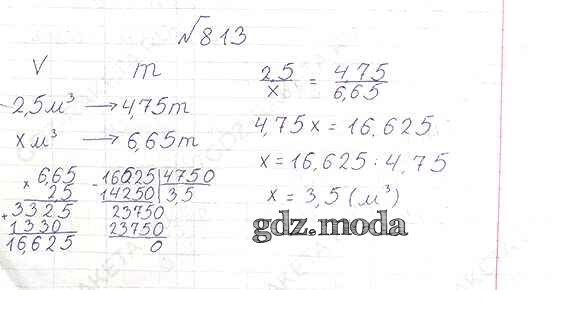 №813
V m
2,5 м³ → 4,75 т
x м³ → 6,65 т
2,5/x = 4,75/6,65
4,75x = 16,625
x = 16,625 : 4,75
x = 3,5 (м³)
× 6,65
2,5
+ 3325
1330
16,625
- 16625 | 4750
14250 | 3,5
23750
23750
0
gdz.moda